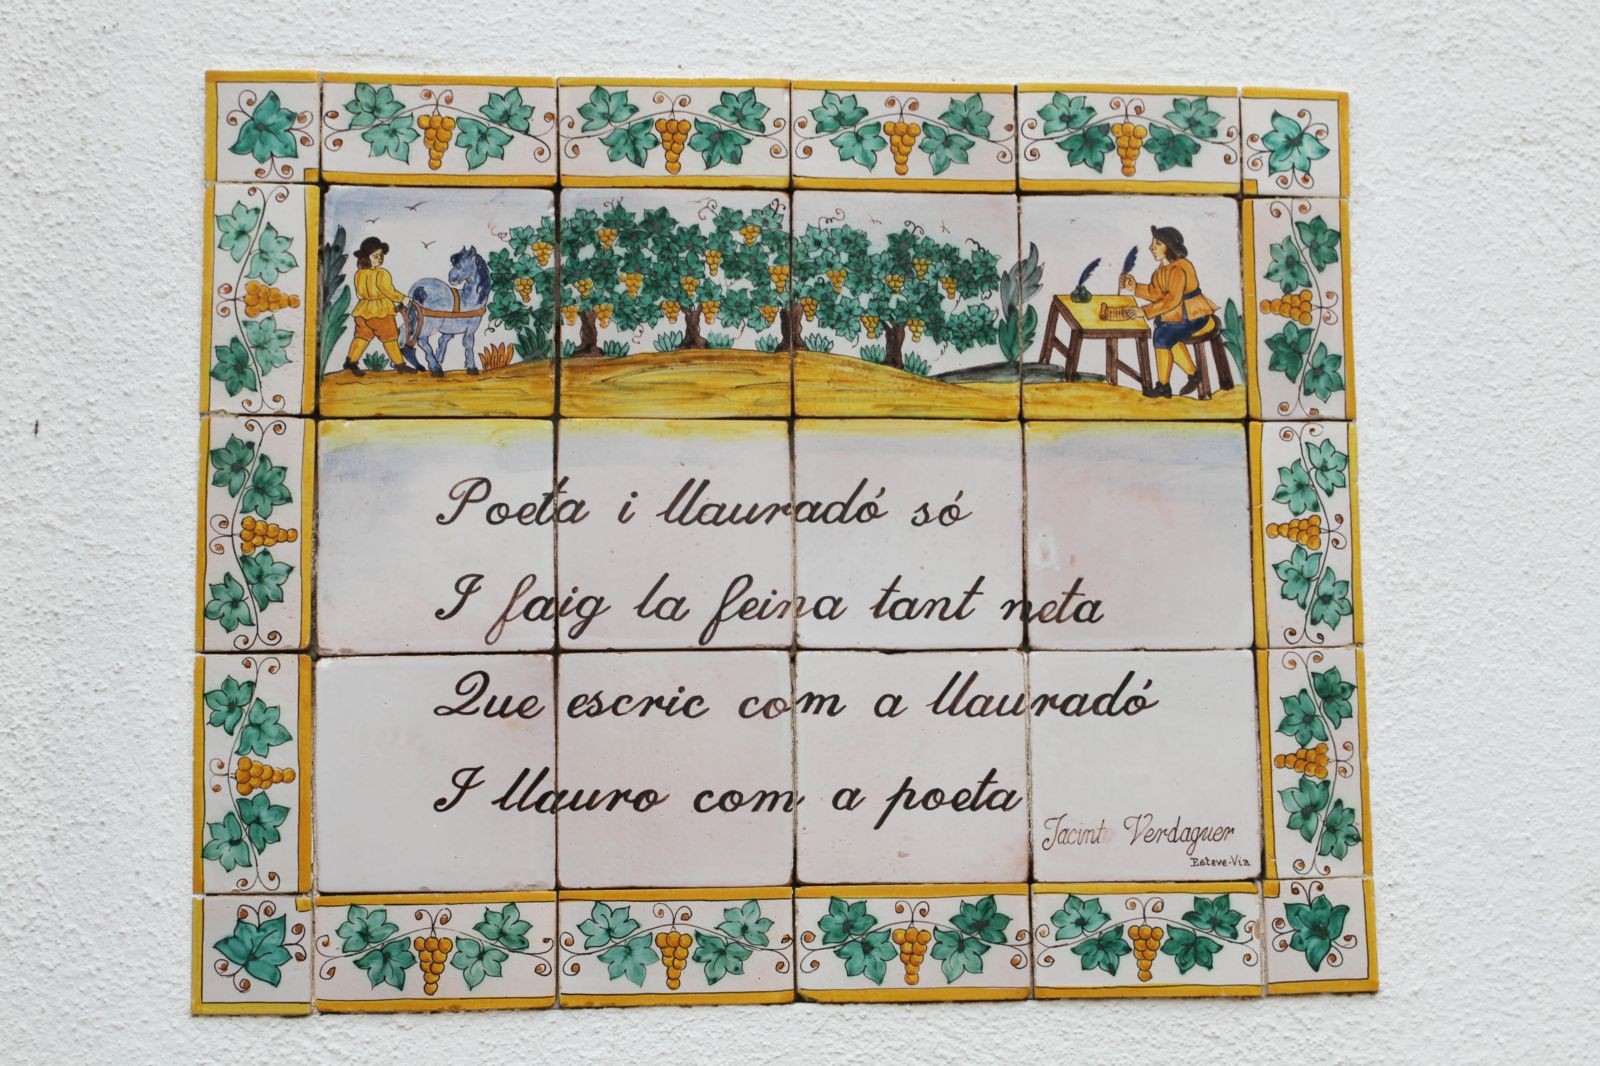 Poeta i llauradó só
I faig la feina tant neta
Que escric com a llauradó
I llauro com a poeta
Jacint Verdaguer
Esteve-Via